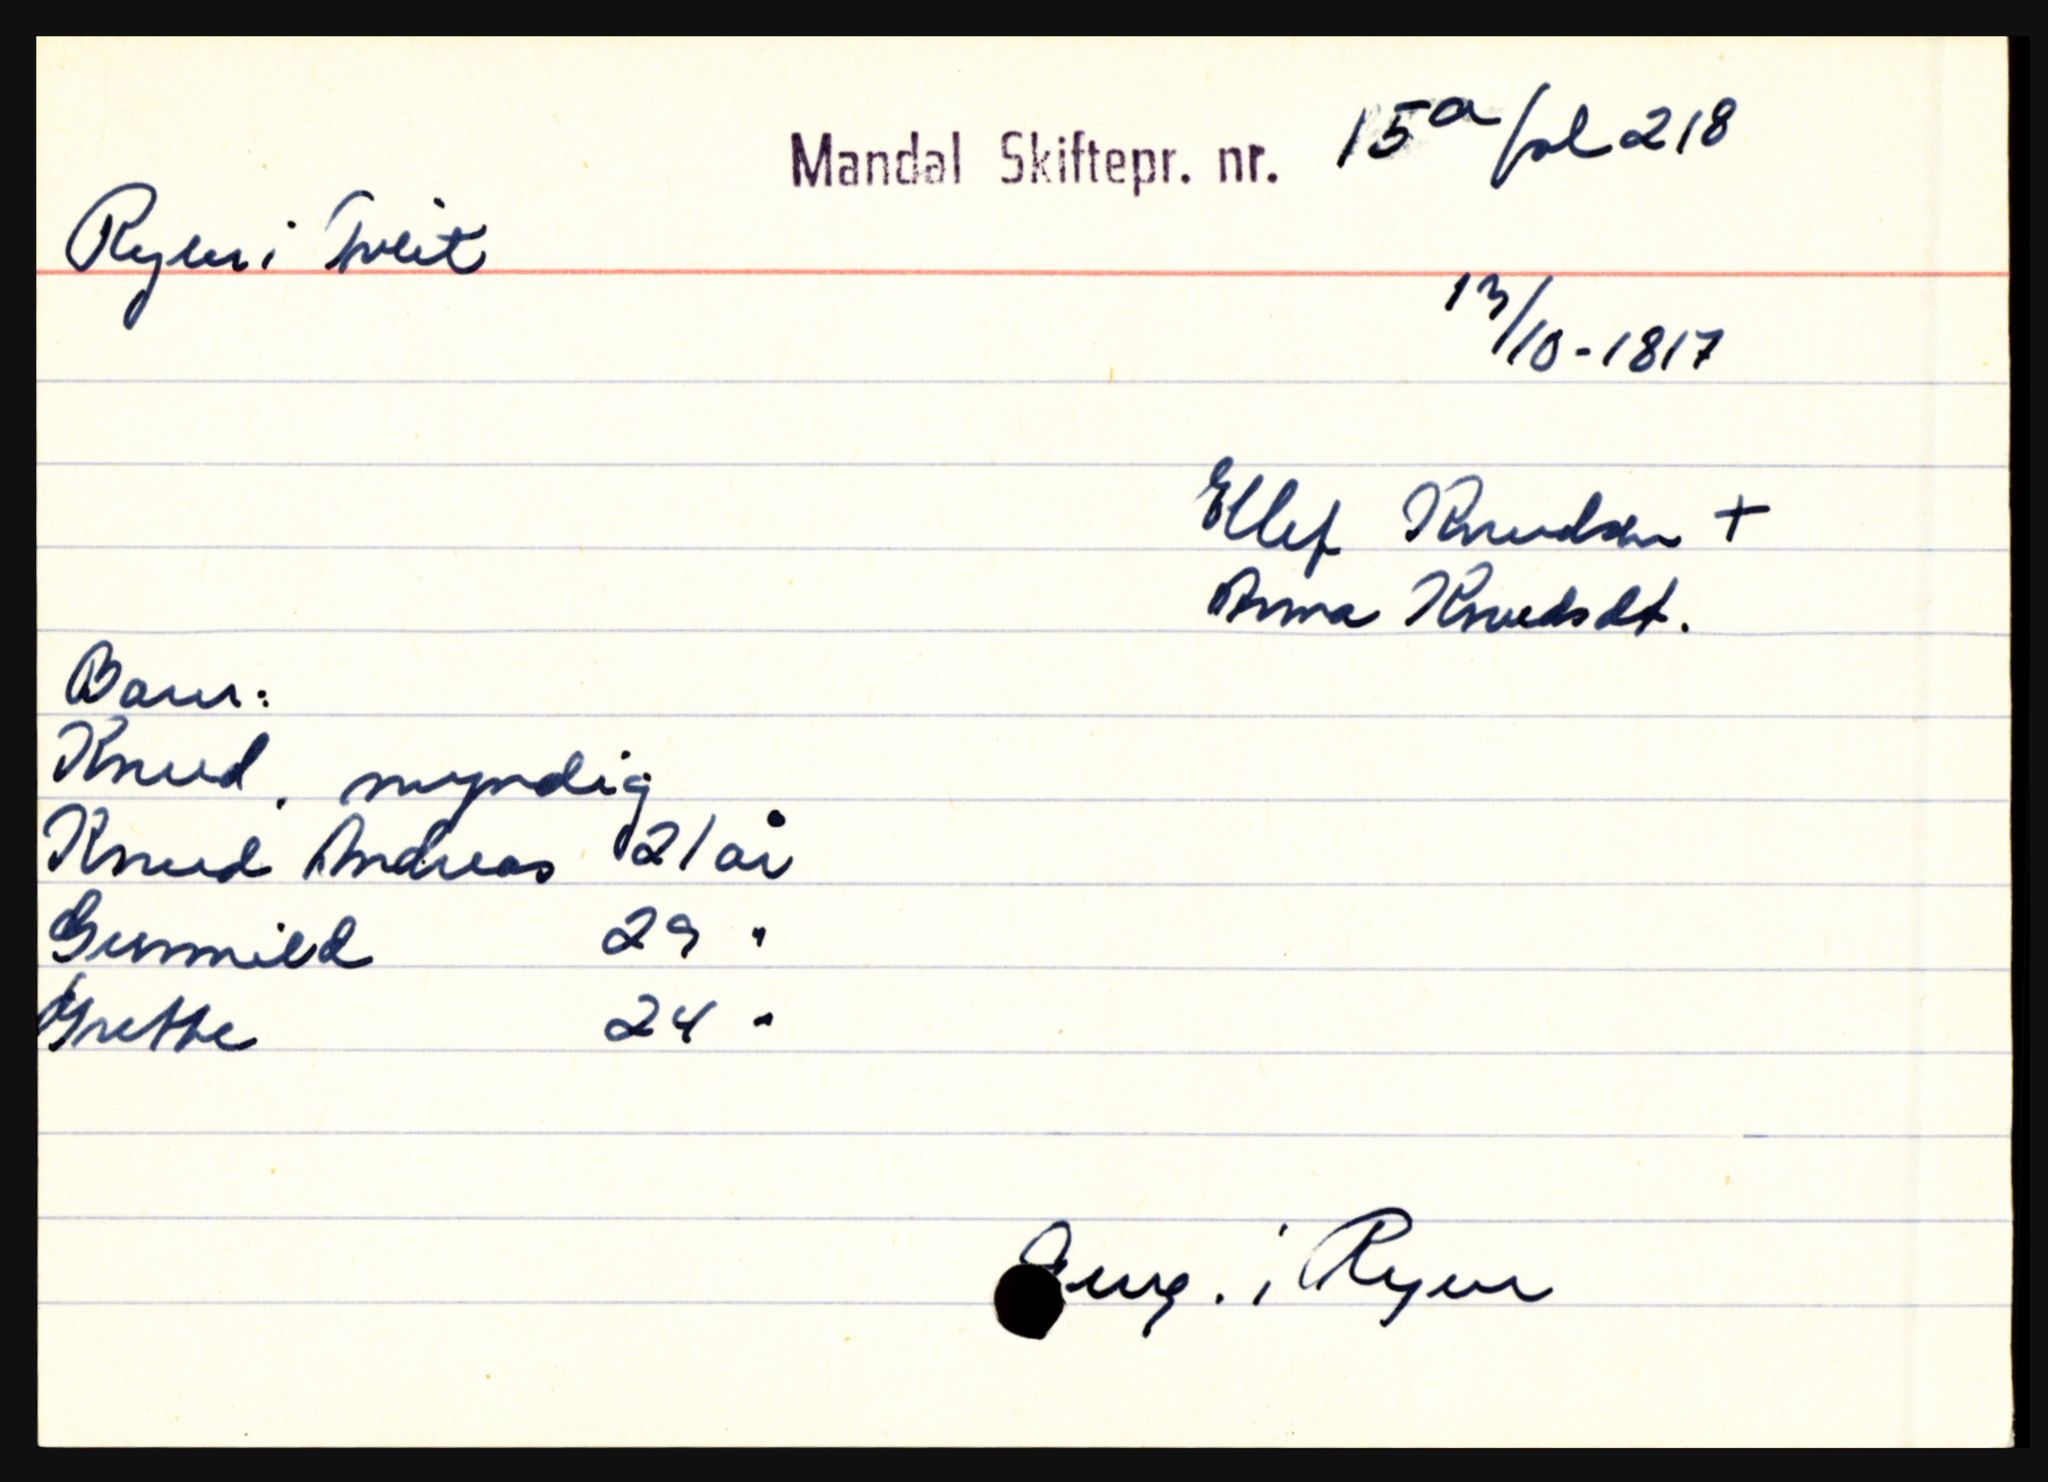 Mandal Skiftepr. nr. 15a fol 218
Ryen i Tveit
13/10-1817
Ellef Knudsen +
Anna Knudsdt.
Barn:
Knud, myndig
Knud Andreas 21 år
Gunnild 29 "
Grethe 24 "
i Ryen